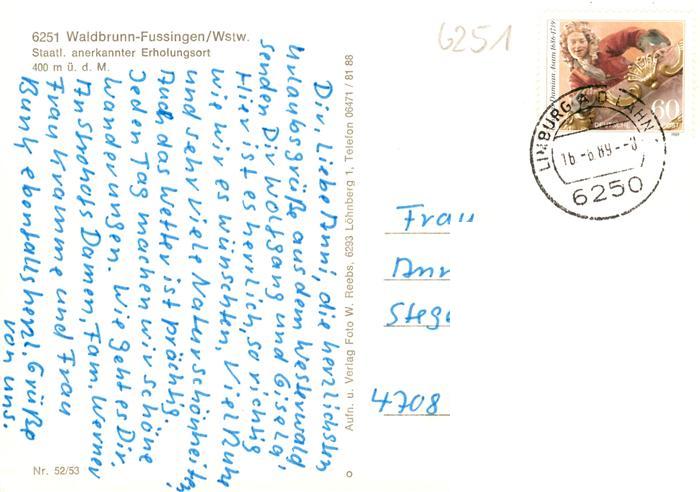 6251 Waldbrunn-Fussingen/Wstw.
Staatl. anerkannter Erholungsort
400 m ü. d. M.
Dir, liebe Anni, die herzlichsten
Urlaubsgrüße aus dem Westerwald
senden Dir Wolfgang und Gisela,
Hier ist es herrlich, so richtig
wie wir es wünschten. Viel Ruhe
und sehr viele Naturschönheiten,
Auch das Wetter ist prächtig.
Jeden Tag machen wir schöne
Wanderungen. Wie geht es Dir,
Damen, Fam. Werner
Frau Kramme und Frau
ebenfalls herzl. Grüße
von uns.
Nr. 52/53
Aufn. u. Verlag Foto W. Reebs, 6293 Löhnberg 1, Telefon 06471 / 81 88
6251
Damian Asam 1686-1739
60
LIMBURG A D LAHN
16.-6.89.--
6250
Frau
Ann
Steg
4708